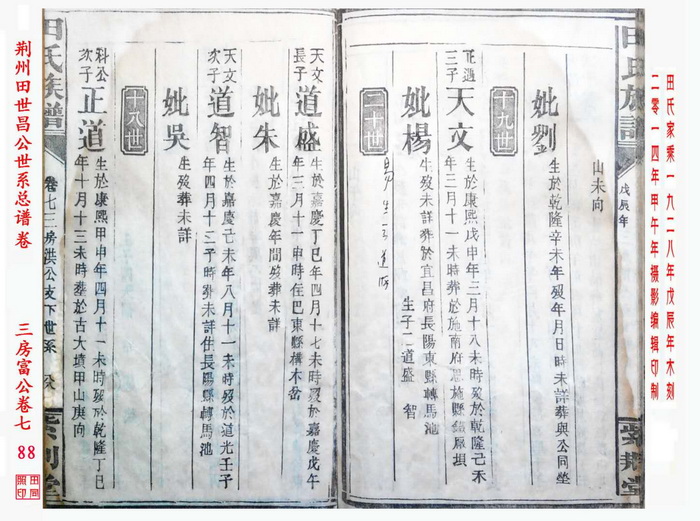 田氏家乘一九二八年戊辰年木刻
二零一四年甲午年摄影编辑印制
田氏族譜
戊辰年
紫荆堂
山未向
妣劉
生於乾隆辛未年歿年月日時未詳葬與公同塋
十九世
正進
三子
天文
生於康熙戊申年三月十八未時歿於乾隆己未
年三月十一未時葬於施南府恩施縣鐵厰垻
妣楊
生歿未詳葬於宜昌府長陽東縣轉馬池
生子二道盛
智
二十世
天文
長子
道盛
生於嘉慶丁巳年四月十七未時歿於嘉慶戊午
年三月十一申時住巴東縣構木岙
妣朱
生於嘉慶年間歿葬未詳
天文
次子
道智
生於嘉慶己未年八月十一未時歿於道光壬子
年四月十三子時葬未詳住長陽縣轉馬池
妣吳
生歿葬未詳
十八世
科公
次子
正道
生於康熙甲申年四月十一未時歿於乾隆丁巳
年十月十三未時葬於古大墳甲山庚向
田氏族譜
卷七三房洪公支下世系
紫荆堂
荆州田世昌公世系总谱卷
三房富公卷七
88